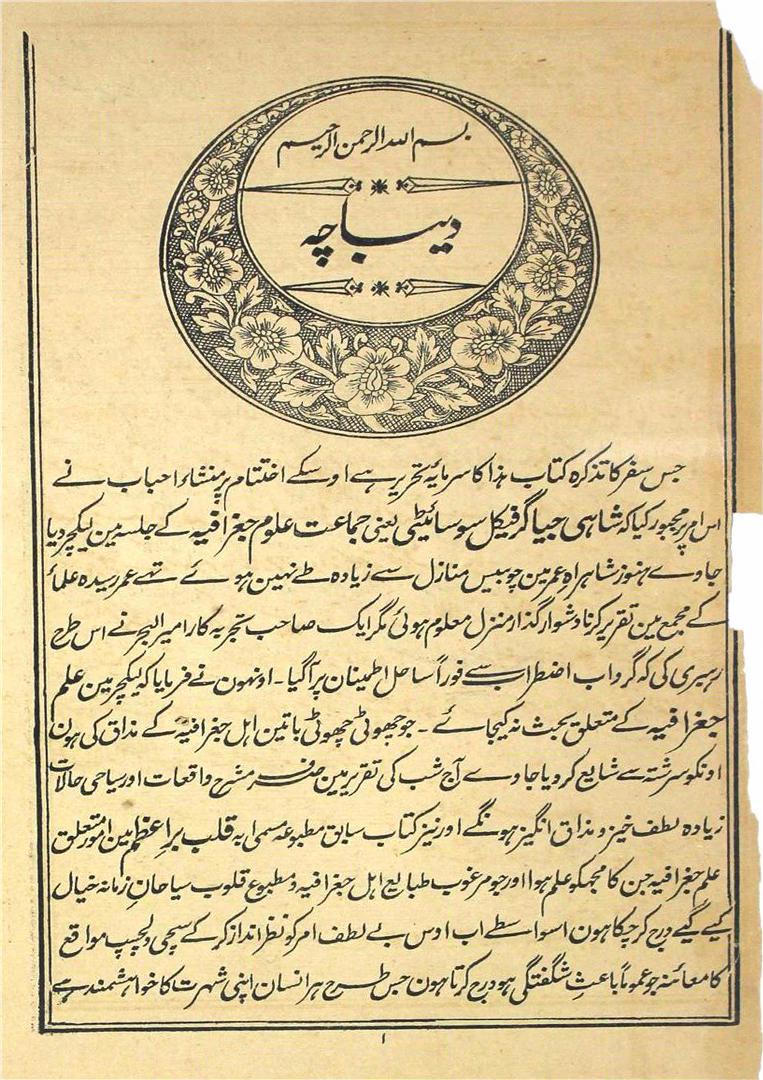 بسم اللہ الرحمن الرحیم
دیباچہ
جس سفر کا تذکرہ کتاب ہذا کا سرمایۂ تحریر ہے اوسکے اختتام پر منشاء احباب نے
اس امر پر مجبور کیا کہ شاہی جیاگرفیکل سوسائیٹی یعنی جماعت علوم جغرافیہ کے جلسہ مین لیکچر دیا
جاوے ہنوز شاہراہ عمر مین چوبیس منازل سے زیادہ طے نہین ہوئے تھے عمر رسیدہ علماء
کے مجمع مین تقریر کرنا دشوار گذار منزل معلوم ہوئی مگر ایک صاحب تجربہ کار امیر البحر نے اس طرح
رہبری کی کہ گرداب اضطراب سے فوراً ساحل اطمینان پر آگیا۔ اونہون نے فرمایا کہ لیکچر مین علم
جغرافیہ کے متعلق بحث نہ کیجائے۔ جو چھوٹی چھوٹی باتین اہل جغرافیہ کے مذاق کی ہون
اونکو سررشتہ سے شایع کر دیا جاوے آج شب کی تقریر مین صرف مشرح واقعات اور سیاحی حالات
زیادہ لطف خیز و مذاق انگیز ہونگے اور نیز کتاب سابق مطبوعہ مسمی بہ قلب براعظم مین امور متعلق
علم جغرافیہ جن کا مجھکو علم ہوا اور جو مرغوب طبایع اہل جغرافیہ و مطبوع قلوب سیاحان زمانہ خیال
کیے گیے درج کر چکا ہون اسواسطے اب اوس بے لطف امر کو نظر انداز کر کے سچی دلچسپ مواقع
کا معائنہ جو عموماً باعث شگفتگی ہو درج کرتا ہون جس طرح ہر انسان اپنی شہرت کا خواہشمند ہے
۱